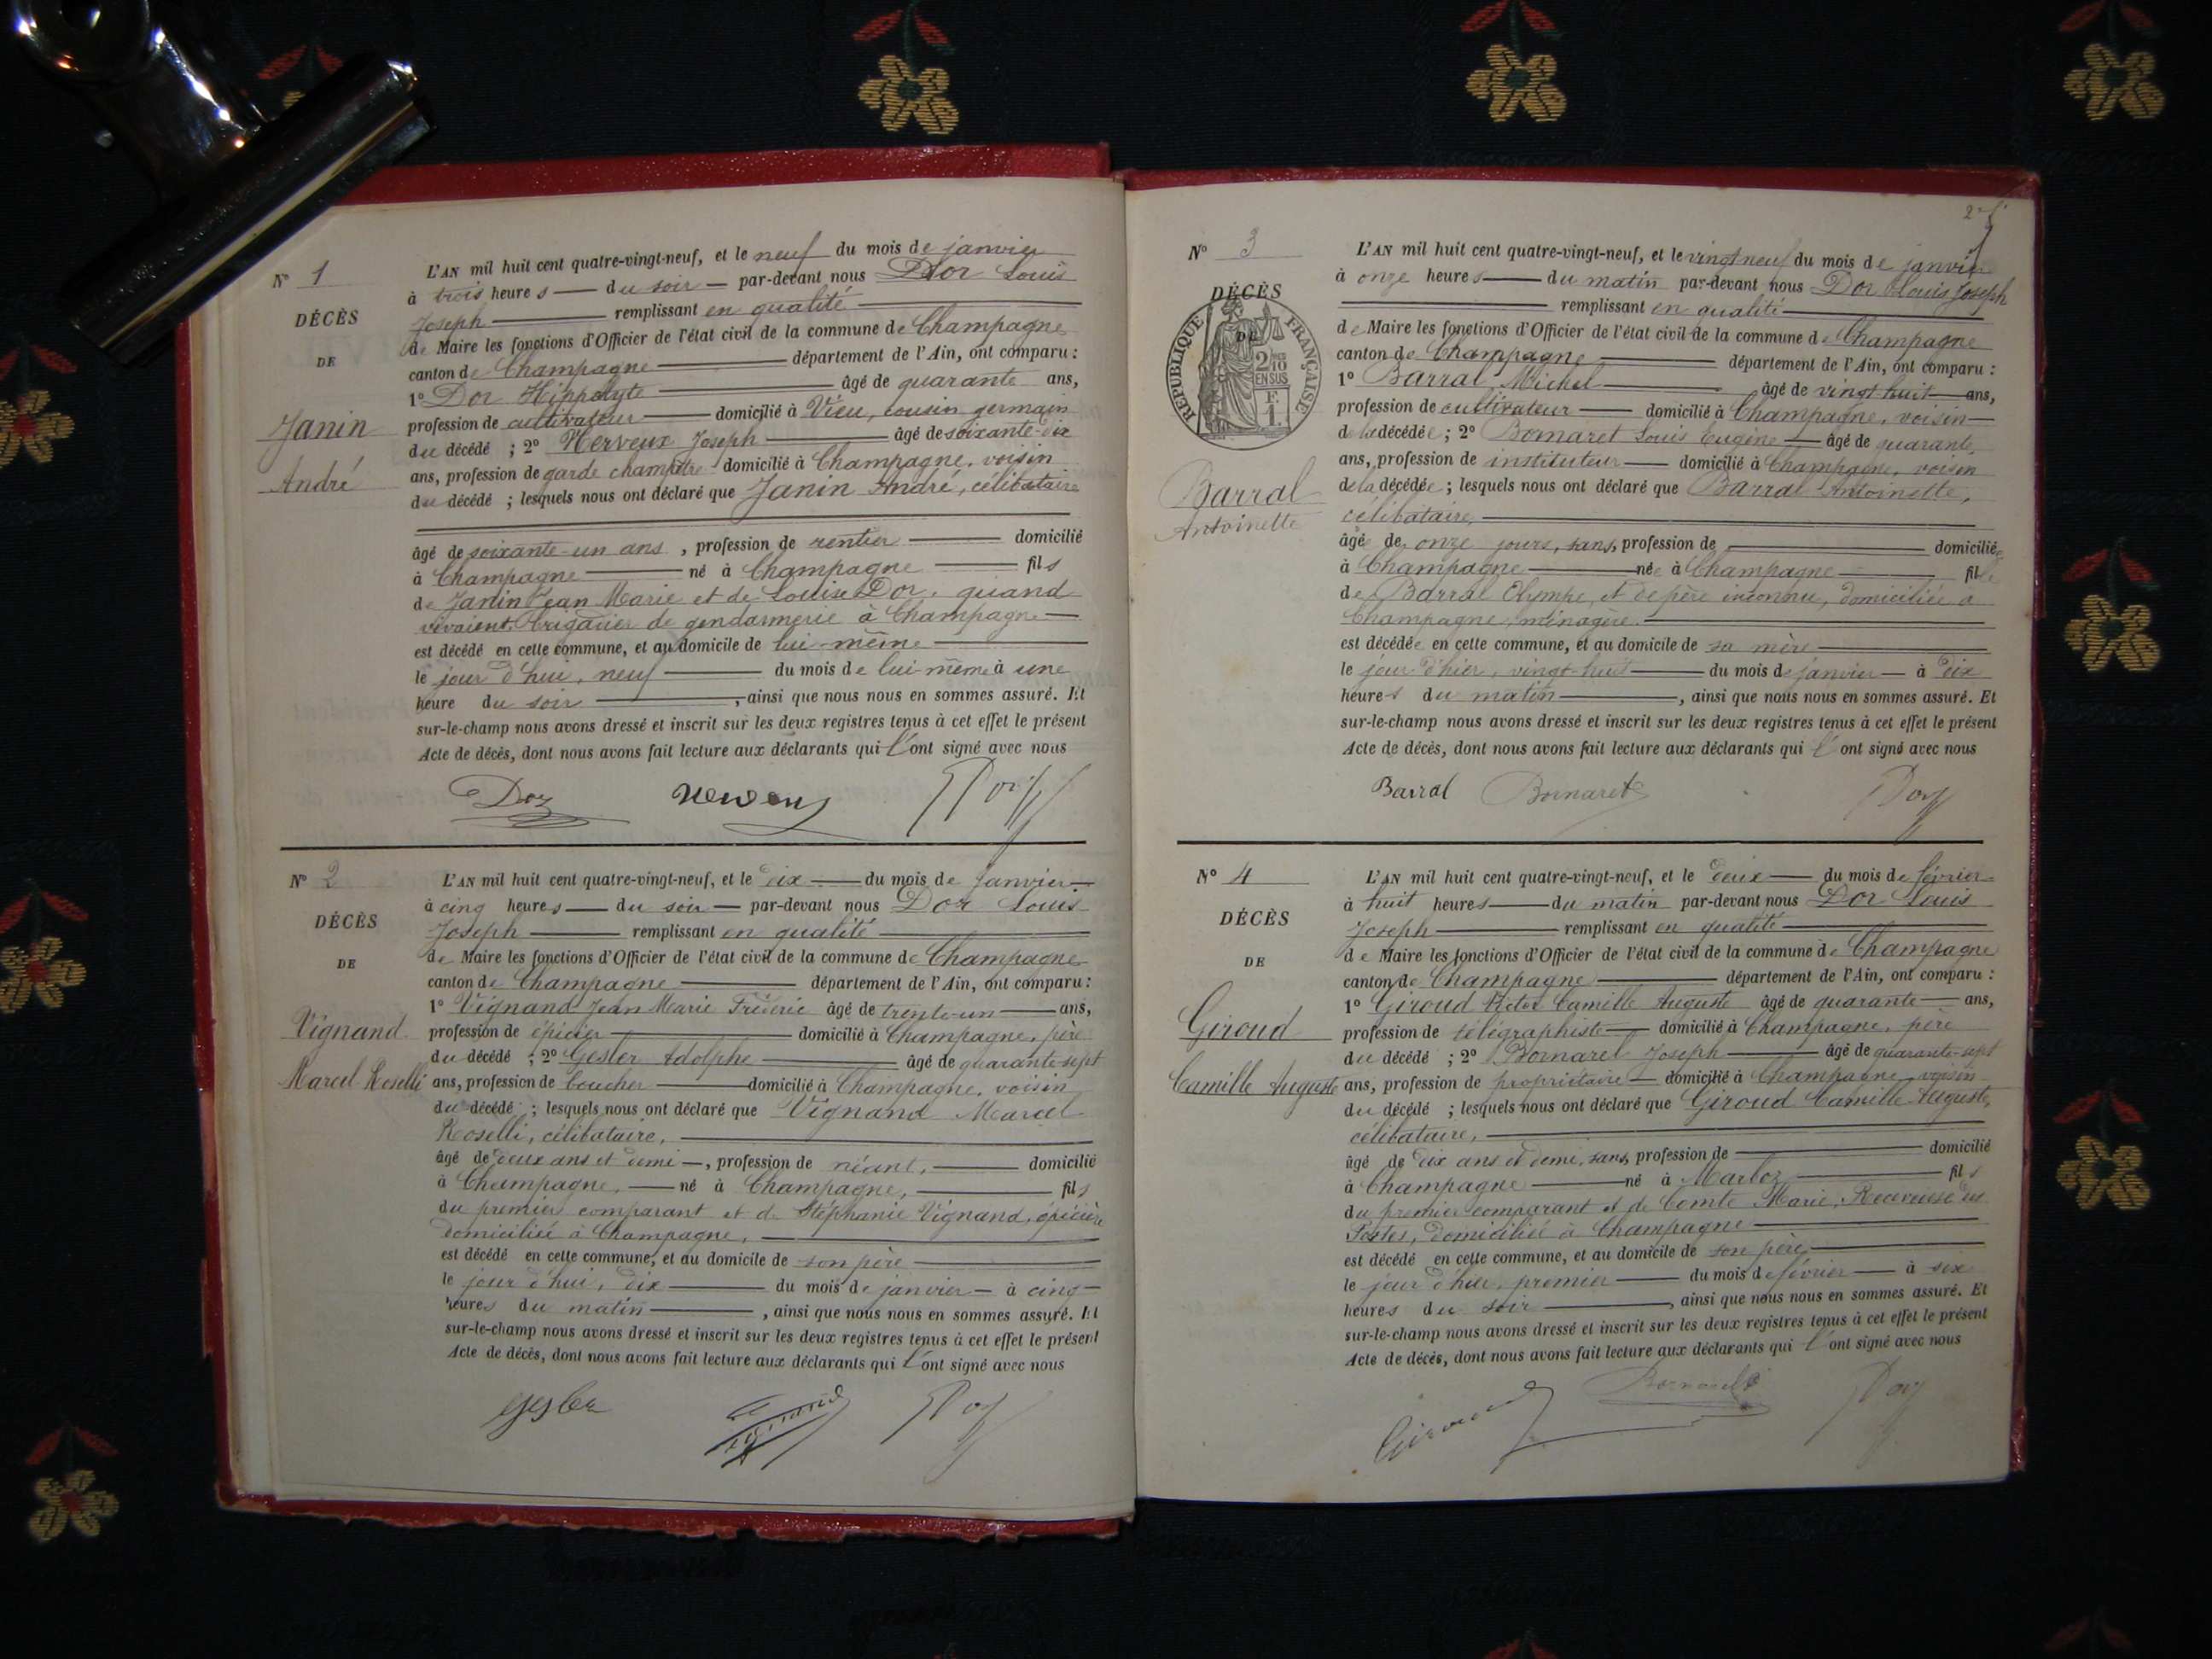 N° 1
DÉCÈS
DE
Janin
André
L'AN mil huit cent quatre-vingt-neuf, et le neuf du mois de janvier
à trois heures du soir par-devant nous Dor Louis
Joseph remplissant en qualité
de Maire les fonctions d'Officier de l'état civil de la commune de Champagne
canton de Champagne département de l'Ain, ont comparu :
1° Dor Hippolyte âgé de quarante ans,
profession de cultivateur domicilié à Vieu, cousin germain
du décédé ; 2° Nerveux Joseph âgé de soixante-dix
ans, profession de garde champêtre domicilié à Champagne, voisin
du décédé ; lesquels nous ont déclaré que Janin André, célibataire
âgé de soixante-un ans, profession de rentier domicilié
à Champagne né à Champagne fils
de Janin Jean Marie et de Louise Dor, quand
vivaient brigadier de gendarmerie à Champagne
est décédé en cette commune, et au domicile de lui-même
le jour d'hui, neuf du mois de lui-même à une
heure du soir, ainsi que nous nous en sommes assuré. Et
sur-le-champ nous avons dressé et inscrit sur les deux registres tenus à cet effet le présent
Acte de décès, dont nous avons fait lecture aux déclarants qui l'ont signé avec nous
Dor
N° 2
DÉCÈS
DE
Vignand
Marcel Roselli
L'AN mil huit cent quatre-vingt-neuf, et le dix du mois de janvier
à cinq heures du soir par-devant nous Dor Louis
Joseph remplissant en qualité
de Maire les fonctions d'Officier de l'état civil de la commune de Champagne
canton de Champagne département de l'Ain, ont comparu :
1° Vignand Jean Marie Fréderic âgé de trente-un ans,
profession de épicier domicilié à Champagne, père
du décédé ; 2° Gesler Adolphe âgé de quarante-sept
ans, profession de boucher domicilié à Champagne, voisin
du décédé ; lesquels nous ont déclaré que Vignand Marcel
Roselli, célibataire,
âgé de deux ans et demi, profession de néant, domicilié
à Champagne, né à Champagne, fils
du premier comparant et de Stéphanie Vignand, épicière
domiciliée à Champagne,
est décédé en cette commune, et au domicile de son père
le jour d'hui, dix du mois de janvier à cinq
heures du matin, ainsi que nous nous en sommes assuré. Et
sur-le-champ nous avons dressé et inscrit sur les deux registres tenus à cet effet le présent
Acte de décès, dont nous avons fait lecture aux déclarants qui l'ont signé avec nous
Gesler Vignand Dor
N° 3
DÉCÈS
DE
RÉPUBLIQUE FRANÇAISE
2/10 EN SUS
F. 1.
Barral
Antoinette
L'AN mil huit cent quatre-vingt-neuf, et le vingt neuf du mois de janvier
à onze heures du matin par-devant nous Dor Louis Joseph
remplissant en qualité
de Maire les fonctions d'Officier de l'état civil de la commune de Champagne
canton de Champagne département de l'Ain, ont comparu :
1° Barral, Michel âgé de vingt-huit ans,
profession de cultivateur domicilié à Champagne, voisin
de la décédée ; 2° Bornaret Louis Eugène âgé de quarante
ans, profession de instituteur domicilié à Champagne, voisin
de la décédée ; lesquels nous ont déclaré que Barral Antoinette,
célibataire,
âgée de onze jours, sans, profession de domiciliée
à Champagne née à Champagne fille
de Barral Olympe, et de père inconnu, domiciliée à
Champagne, ménagère.
est décédée en cette commune, et au domicile de sa mère
le jour d'hier, vingt-huit du mois de janvier à dix
heures du matin, ainsi que nous nous en sommes assuré. Et
sur-le-champ nous avons dressé et inscrit sur les deux registres tenus à cet effet le présent
Acte de décès, dont nous avons fait lecture aux déclarants qui l'ont signé avec nous
Barral Bornaret Dor
N° 4
DÉCÈS
DE
Giroud
Camille Auguste
L'AN mil huit cent quatre-vingt-neuf, et le deux du mois de février
à huit heures du matin par-devant nous Dor Louis
Joseph remplissant en qualité
de Maire les fonctions d'Officier de l'état civil de la commune de Champagne
canton de Champagne département de l'Ain, ont comparu :
1° Giroud Victor Camille Auguste âgé de quarante ans,
profession de télégraphiste domicilié à Champagne, père
du décédé ; 2° Bornaret Joseph âgé de quarante-sept
ans, profession de propriétaire domicilié à Champagne, voisin
du décédé ; lesquels nous ont déclaré que Giroud Camille Auguste,
célibataire,
âgé de dix ans et demi, sans, profession de domicilié
à Champagne né à Marboz fils
du premier comparant et de Comte Marie, Receveuse des
Postes, domiciliée à Champagne
est décédé en cette commune, et au domicile de son père,
le jour d'hier, premier du mois de février à six
heures du soir, ainsi que nous nous en sommes assuré. Et
sur-le-champ nous avons dressé et inscrit sur les deux registres tenus à cet effet le présent
Acte de décès, dont nous avons fait lecture aux déclarants qui l'ont signé avec nous
Giroud Bornaret Dor